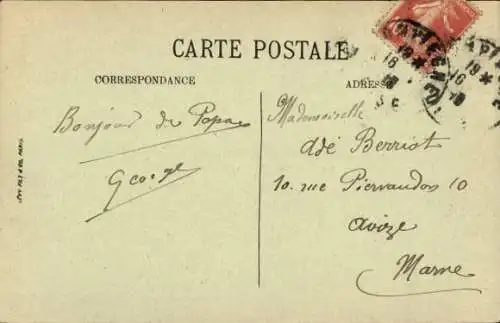 CARTE POSTALE
CORRESPONDANCE
ADRESSE
Bonjour de Papa
George
Mademoiselle
adé Berriot
10. rue Piervaudon 10
avize
Marne